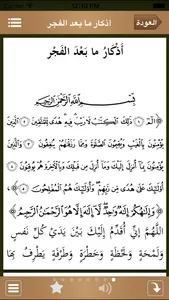 12:10 PM
العودة
اذكار ما بعد الفجر
أَذْكَارُ مَا بَعْدَ الفَجْر
بِسْمِ اللَّهِ الرَّحْمَٰنِ الرَّحِيمِ
﴿الٓمٓ ﴿١﴾ ذَٰلِكَ الْكِتَابُ لَا رَيْبَ فِيهِ هُدًى لِلْمُتَّقِينَ ﴿٢﴾ الَّذِينَ
يُؤْمِنُونَ بِالْغَيْبِ وَيُقِيمُونَ الصَّلَاةَ وَمِمَّا رَزَقْنَاهُمْ يُنْفِقُونَ ﴿٣﴾ وَالَّذِينَ
يُؤْمِنُونَ بِمَا أُنْزِلَ إِلَيْكَ وَمَا أُنْزِلَ مِنْ قَبْلِكَ وَبِالْآخِرَةِ هُمْ يُوقِنُونَ ﴿٤﴾
أُولَٰئِكَ عَلَىٰ هُدًى مِنْ رَبِّهِمْ وَأُولَٰئِكَ هُمُ الْمُفْلِحُونَ ﴿٥﴾
﴿وَإِلَٰهُكُمْ إِلَٰهٌ وَاحِدٌ لَا إِلَٰهَ إِلَّا هُوَ الرَّحْمَٰنُ الرَّحِيمُ﴾
اللَّهُمَّ إِنِّي أُقَدِّمُ إِلَيْكَ بَيْنَ يَدَيْ كُلِّ نَفَسٍ
وَلَمْحَةٍ وَلَحْظَةٍ وَخَطْرَةٍ وَطَرْفَةٍ يَطْرِفُ بِهَا